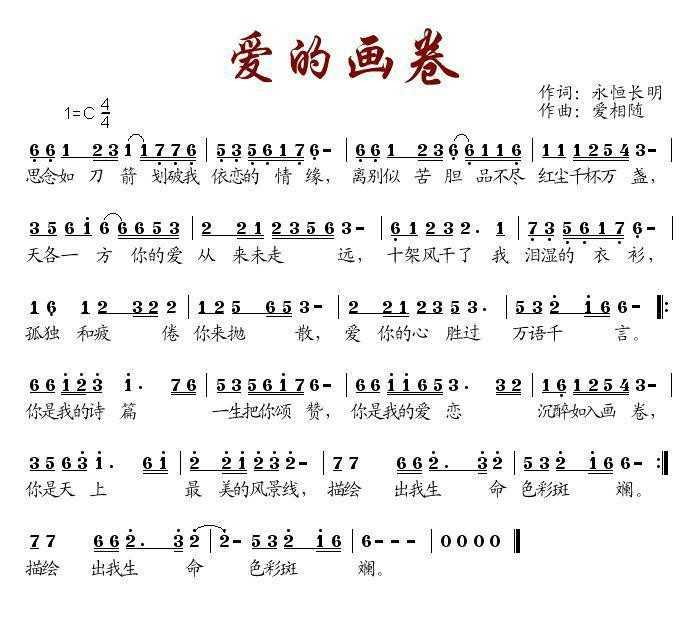 爱的画卷
作词：永恒长明
1=C 4/4
作曲：爱相随
6 6 1 2 3 1 1 7 7 6 | 5 3 5 6 1 7 6 - | 6 6 1 2 3 6 6 1 1 6 | 1 1 1 2 5 4 3 - |
思念如 刀 箭 划破我 依恋的 情 缘，离别似 苦 胆 品不尽 红尘千杯万 盏，
3 5 6 i 6 6 6 5 3 | 2 2 2 1 2 3 5 6 3 - | 6 1 2 3 2 . 1 | 7 3 5 6 1 7 6 - |
天各一 方 你的爱 从 来未走 远， 十架风干了 我 泪湿的 衣 衫，
1 6 1 2 3 2 2 | 1 2 5 6 5 3 - | 2 2 2 1 2 3 5 3 . | 5 3 2 i 6 6 - ‖:
孤独 和疲 倦 你来抛 散，爱 你的心 胜过 万语千 言。
6 6 i 2 3 i . 7 6 | 5 3 5 6 i 7 6 - | 6 6 i i 6 5 3 . 3 2 | 1 6 1 2 5 4 3 - |
你是我的诗 篇 一生把你颂 赞，你是我的爱 恋 沉醉如入画 卷，
3 5 6 3 i . 6 i | 2 2 i 2 3 2 - | 7 7 6 6 2 . 3 2 | 5 3 2 i 6 6 - :‖
你是天 上 最 美的风景线，描绘 出我生 命 色彩斑 斓。
7 7 6 6 2 . 3 2 | 2 - 5 3 2 i 6 | 6 - - - | 0 0 0 0 ‖
描绘 出我生 命 色彩斑 斓。